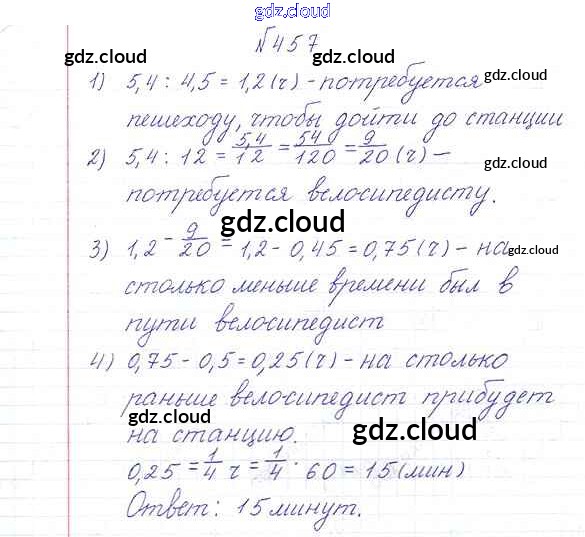 gdz.cloud
№457
gdz.cloud gdz.cloud
1) 5,4 : 4,5 = 1,2 (ч) - потребуется
gdz.cloud
пешеходу, чтобы дойти до станции
2) 5,4 : 12 = 5,4/12 = 54/120 = 9/20 (ч) —
gdz.cloud
потребуется велосипедисту.
gdz.cloud
3) 1,2 - 9/20 = 1,2 - 0,45 = 0,75 (ч) - на
gdz.cloud
столько меньше времени был в
пути велосипедист
4) 0,75 - 0,5 = 0,25 (ч) - на столько
раньше велосипедист прибудет
gdz.cloud gdz.cloud
на станцию.
0,25 = 1/4 ч = 1/4 · 60 = 15 (мин)
Ответ: 15 минут.
gdz.cloud